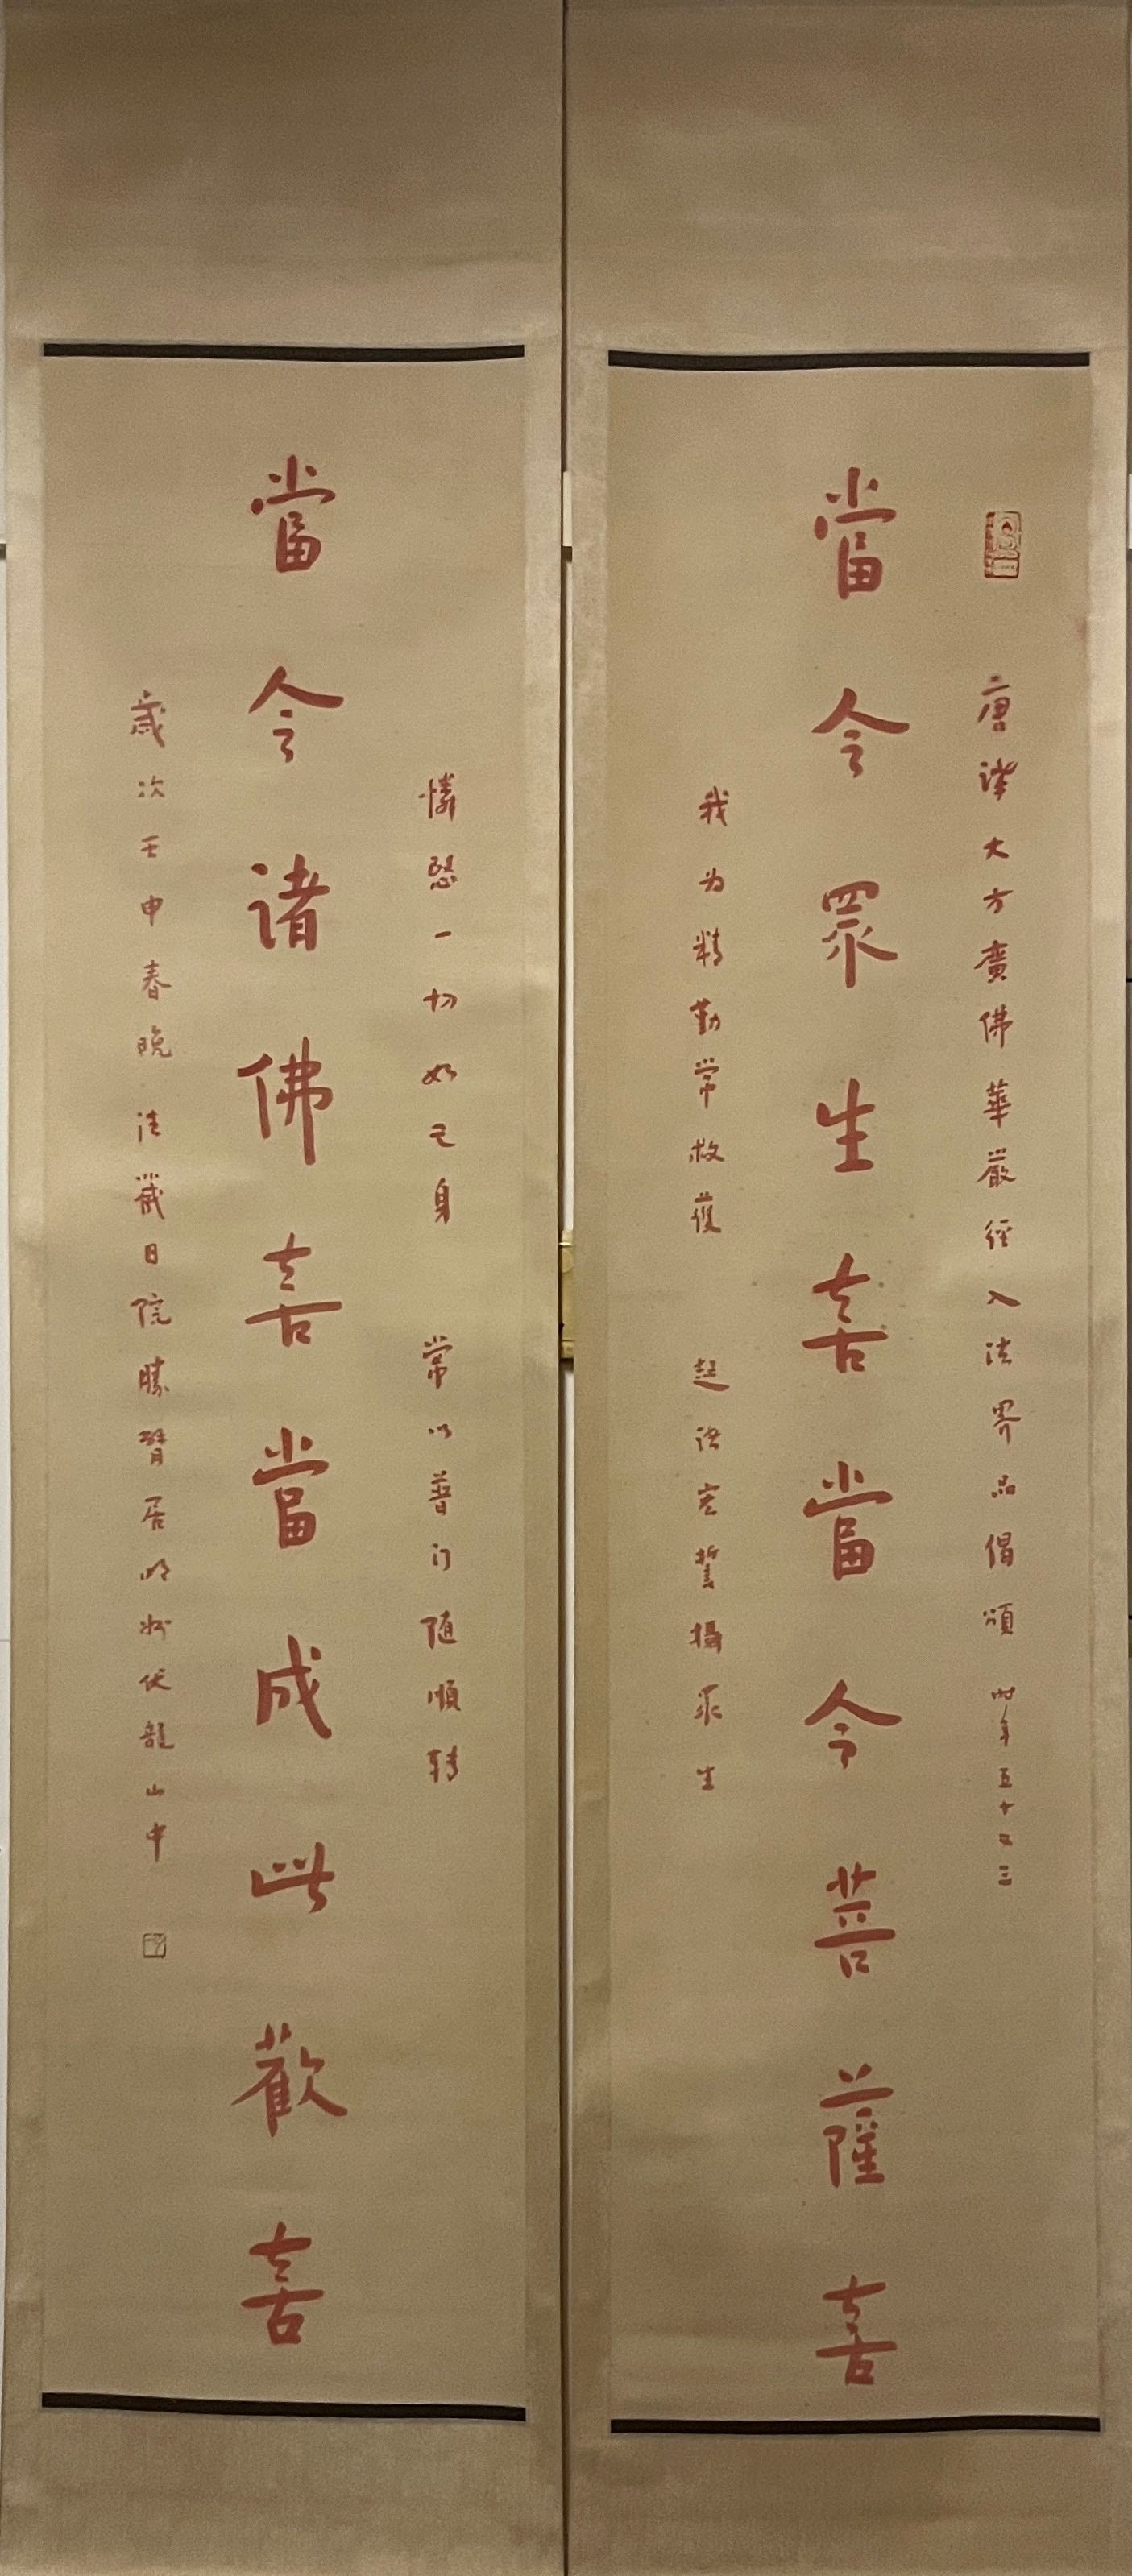 唐譯大方廣佛華嚴經入法界品偈頌 時年五十又三
當令眾生喜當令菩薩喜
我為精勤常救護 起諸宏誓攝眾生
憐愍一切如己身 常以普門隨順轉
當令諸佛喜當成此歡喜
歲次壬申春晚法藏日院勝臂居明州伏龍山中